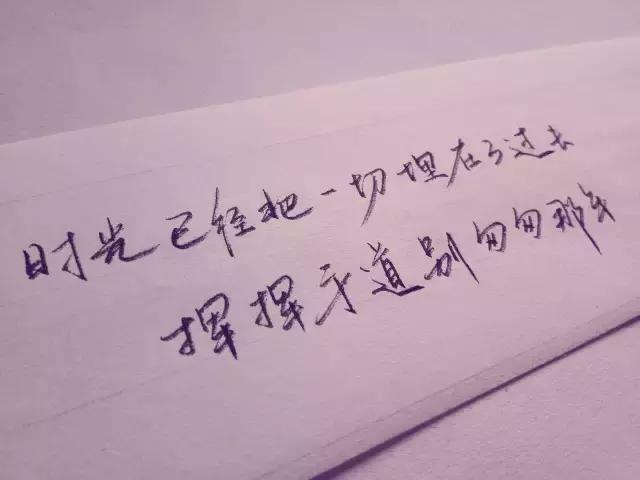 时光已经把一切埋在了过去
挥挥手道别匆匆那年